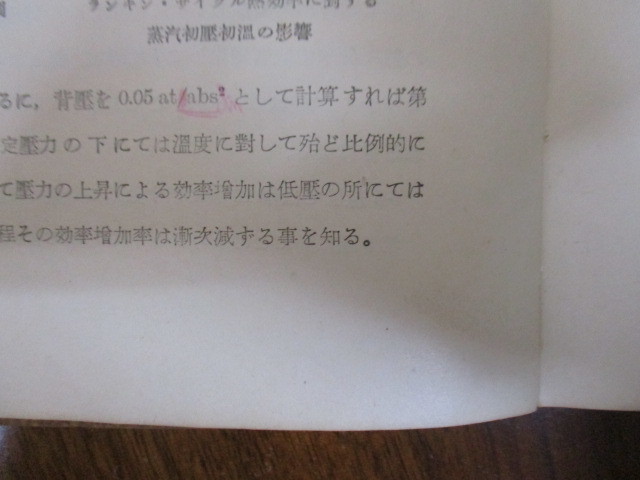 ランキン・サイクル熱効率に對する
蒸汽初壓初溫の影響
るに，背壓を 0.05 at/abs² として計算すれば第
定壓力の下にては溫度に對して殆ど比例的に
て壓力の上昇による効率增加は低壓の所にては
程その効率增加率は漸次減する事を知る。